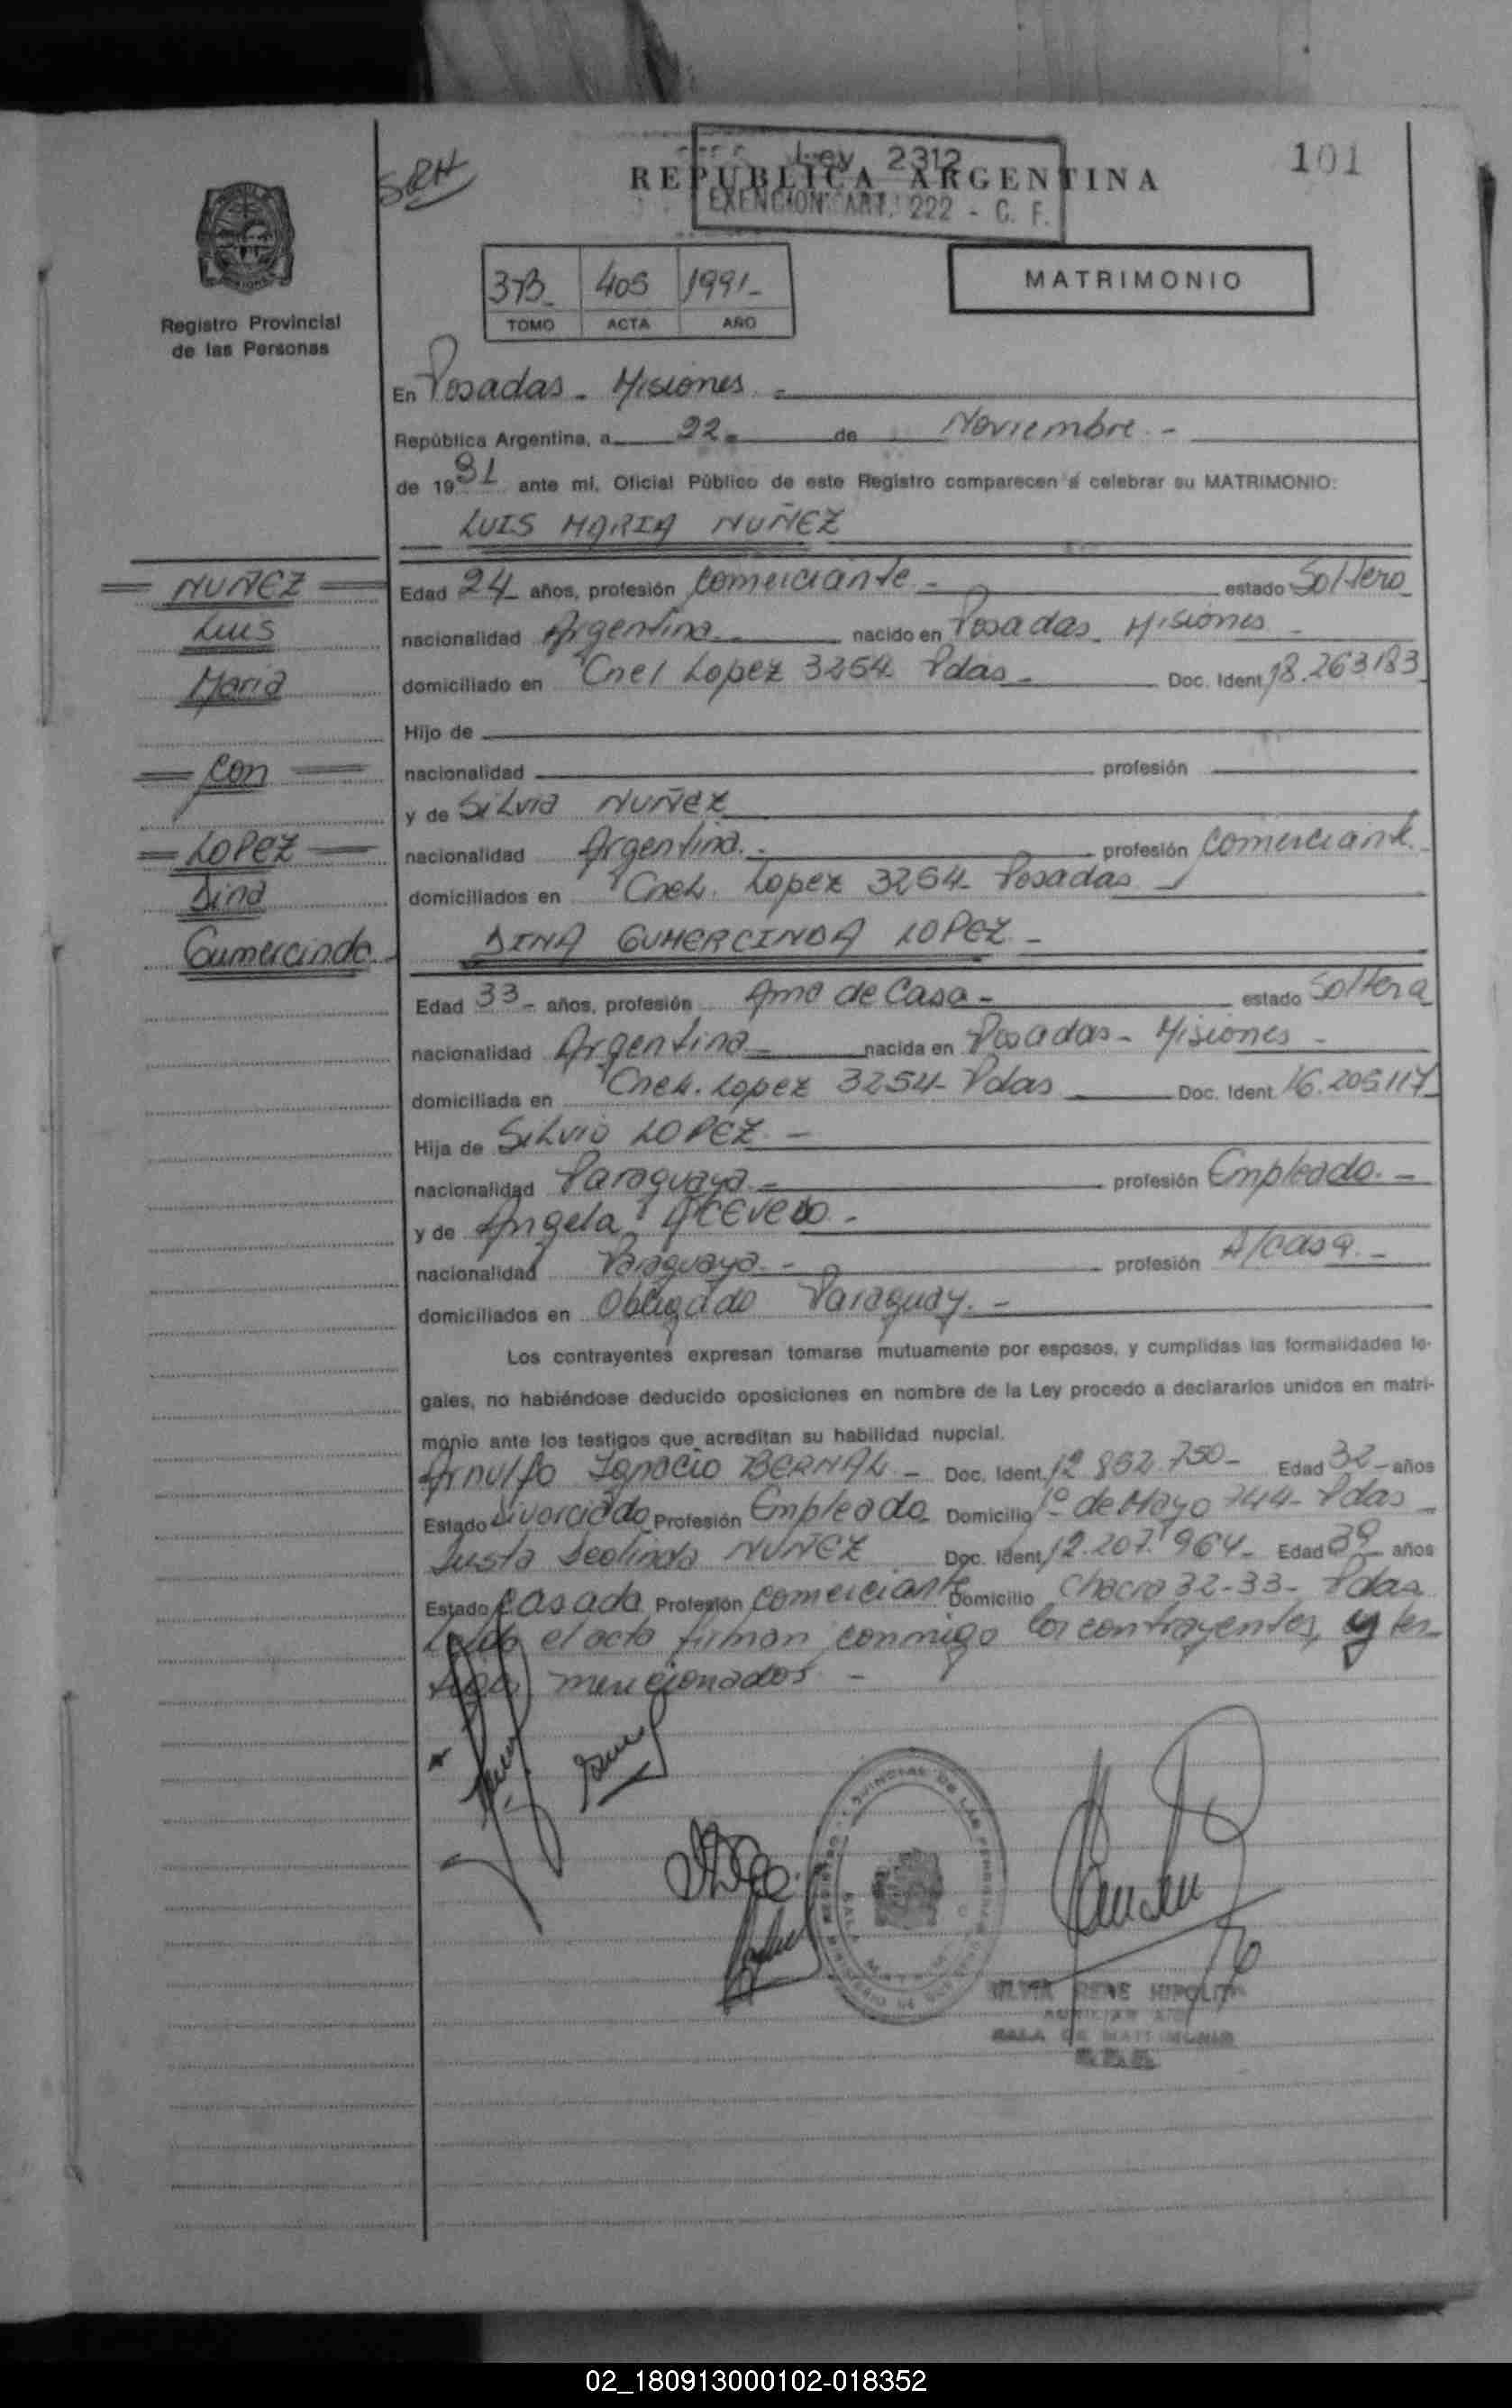 SRH
Ley 2312
REPUBLICA ARGENTINA
EXENCION ART. 222 - C. F.
101
373 405 1991-
TOMO ACTA AÑO
MATRIMONIO
Registro Provincial
de las Personas
En Posadas - Misiones -
República Argentina, a 22- de Noviembre -
de 1991 ante mí, Oficial Público de este Registro comparecen a celebrar su MATRIMONIO:
LUIS MARIA NUÑEZ
NUÑEZ
Luis
Maria
con
LOPEZ
Dina
Gumercinda
Edad 24 años, profesión comerciante - estado Soltero
nacionalidad Argentina - nacido en Posadas - Misiones -
domiciliado en Cnel Lopez 3254 Pdas - Doc. Ident. 18.263183
Hijo de
nacionalidad profesión
y de Silvia NUÑEZ
nacionalidad Argentina - profesión comerciante
domiciliados en Cnel. Lopez 3254 Posadas
DINA GUMERCINDA LOPEZ -
Edad 33- años, profesión Ama de Casa - estado Soltera
nacionalidad Argentina nacida en Posadas - Misiones -
domiciliada en Cnel. Lopez 3254- Pdas Doc. Ident. 16.205117
Hija de Silvio LOPEZ -
nacionalidad Paraguaya - profesión Empleado. -
y de Angela ACEVEDO -
nacionalidad Paraguaya - profesión A/casa -
domiciliados en Obligado Paraguay. -
Los contrayentes expresan tomarse mutuamente por esposos, y cumplidas las formalidades le-
gales, no habiéndose deducido oposiciones en nombre de la Ley procedo a declararlos unidos en matri-
monio ante los testigos que acreditan su habilidad nupcial.
Arnulfo Ignacio BERNAL - Doc. Ident. 12 852.750- Edad 32- años
Estado divorciado Profesión Empleado Domicilio 1º de Mayo 744- Pdas -
Justa Deolinda NUÑEZ Doc. Ident. 12.207.964- Edad 39 años
Estado casada Profesión comerciante Domicilio Chacra 32-33- Pdas
Leida el acta firman conmigo los contrayentes, y tes-
tigos mencionados -
SILVIA RENE HIPOLITA
SALA DE MATRIMONIO
02_180913000102-018352